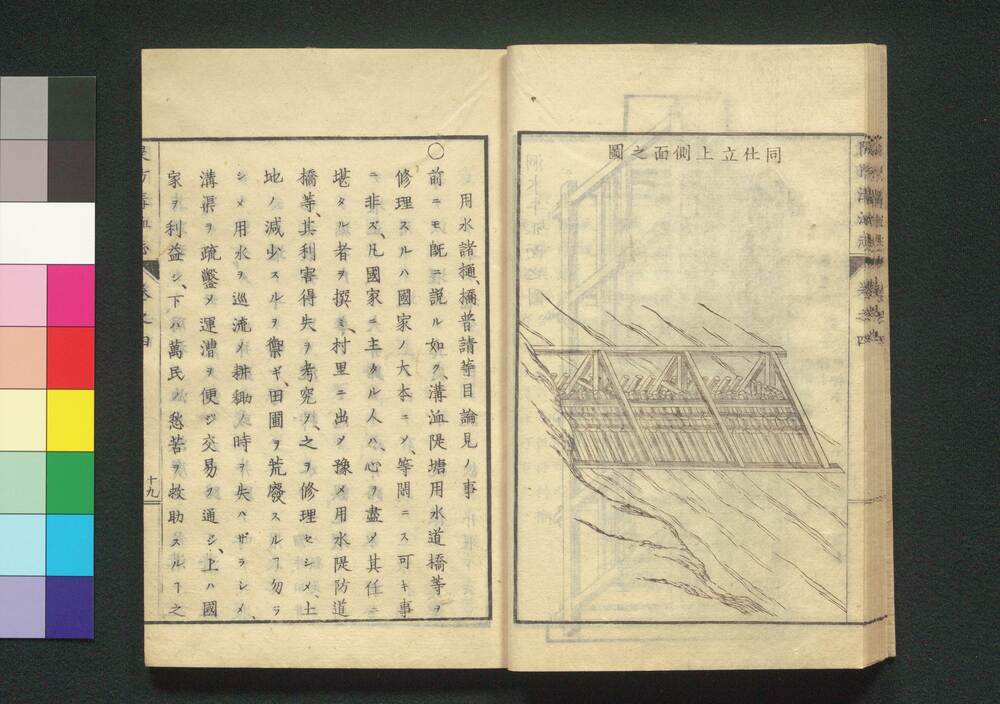 同仕立上側面之圖
用水諸樋、擶普請等目論見ノ事
〇前ニモ既ニ說ル如ク、溝洫隄塘用水道橋等ヲ
修理スルハ國家ノ大本ニメ、等閑ニス可キ事
ニ非ズ、凡國家ニ主タル人ハ、心ヲ盡メ其任ニ
堪タル者ヲ撰ミ、村里ニ出メ豫メ用水隄防道
橋等、其利害得失ヲ考究メ、之ヲ修理セシメ、土
地ノ減少スルヲ禦ギ、田圃ヲ荒廢スルヿ勿ラ
シメ用水ヲ巡流メ耕耡ノ時ヲ失ハザラシメ、
溝渠ヲ疏鑿メ運漕ヲ便ジ交易ヲ通シ、上ハ國
家ヲ利益シ、下ハ萬民ノ愁苦ヲ救助スルヿ之
十九